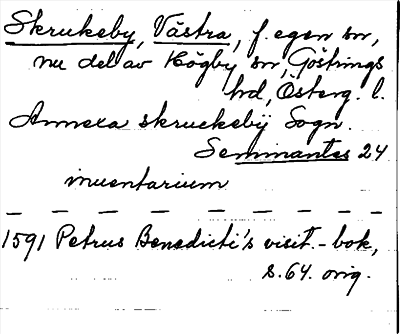 Skrukeby, Västra, f. egen sn,
nu del av Högby sn, Göstrings
hd, Österg. l.
Annexa skruckebÿ Sogn.
Seminantes 24
inuentarium
— — — — — — — —
1591 Petrus Benedicti's visit.-bok,
s. 64. orig.